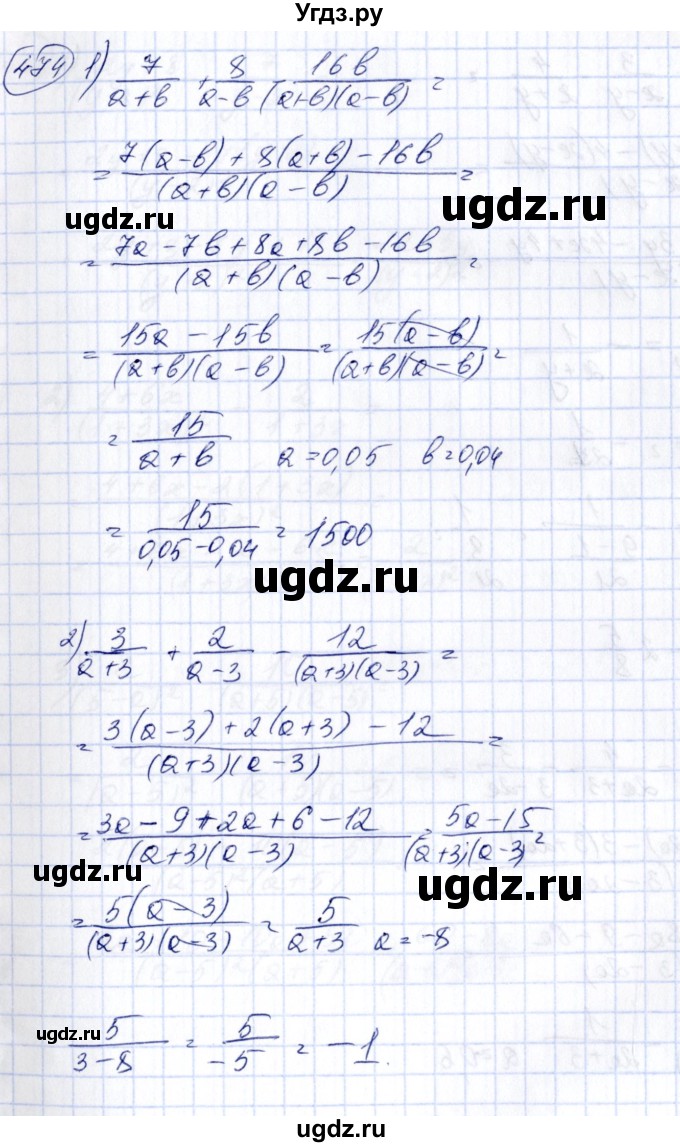 Угдз.ру
474 1) 7/(a+b) + 8/(a-b) - 16b/((a+b)(a-b)) =
= (7(a-b) + 8(a+b) - 16b)/((a+b)(a-b)) =
ugdz.ru ugdz.ru
= (7a - 7b + 8a + 8b - 16b)/((a+b)(a-b)) =
= (15a - 15b)/((a+b)(a-b)) = 15(a-b)/((a+b)(a-b)) =
= 15/(a+b) a=0,05 b=0,04
= 15/(0,05-0,04) = 1500
ugdz.ru
2) 3/(a+3) + 2/(a-3) - 12/((a+3)(a-3)) =
= (3(a-3) + 2(a+3) - 12)/((a+3)(a-3)) =
= (3a - 9 + 2a + 6 - 12)/((a+3)(a-3)) = (5a-15)/((a+3)(a-3)) =
ugdz.ru ugdz.ru
= 5(a-3)/((a+3)(a-3)) = 5/(a+3) a=-8
ugdz.ru
5/(3-8) = 5/-5 = -1.
ugdz.ru